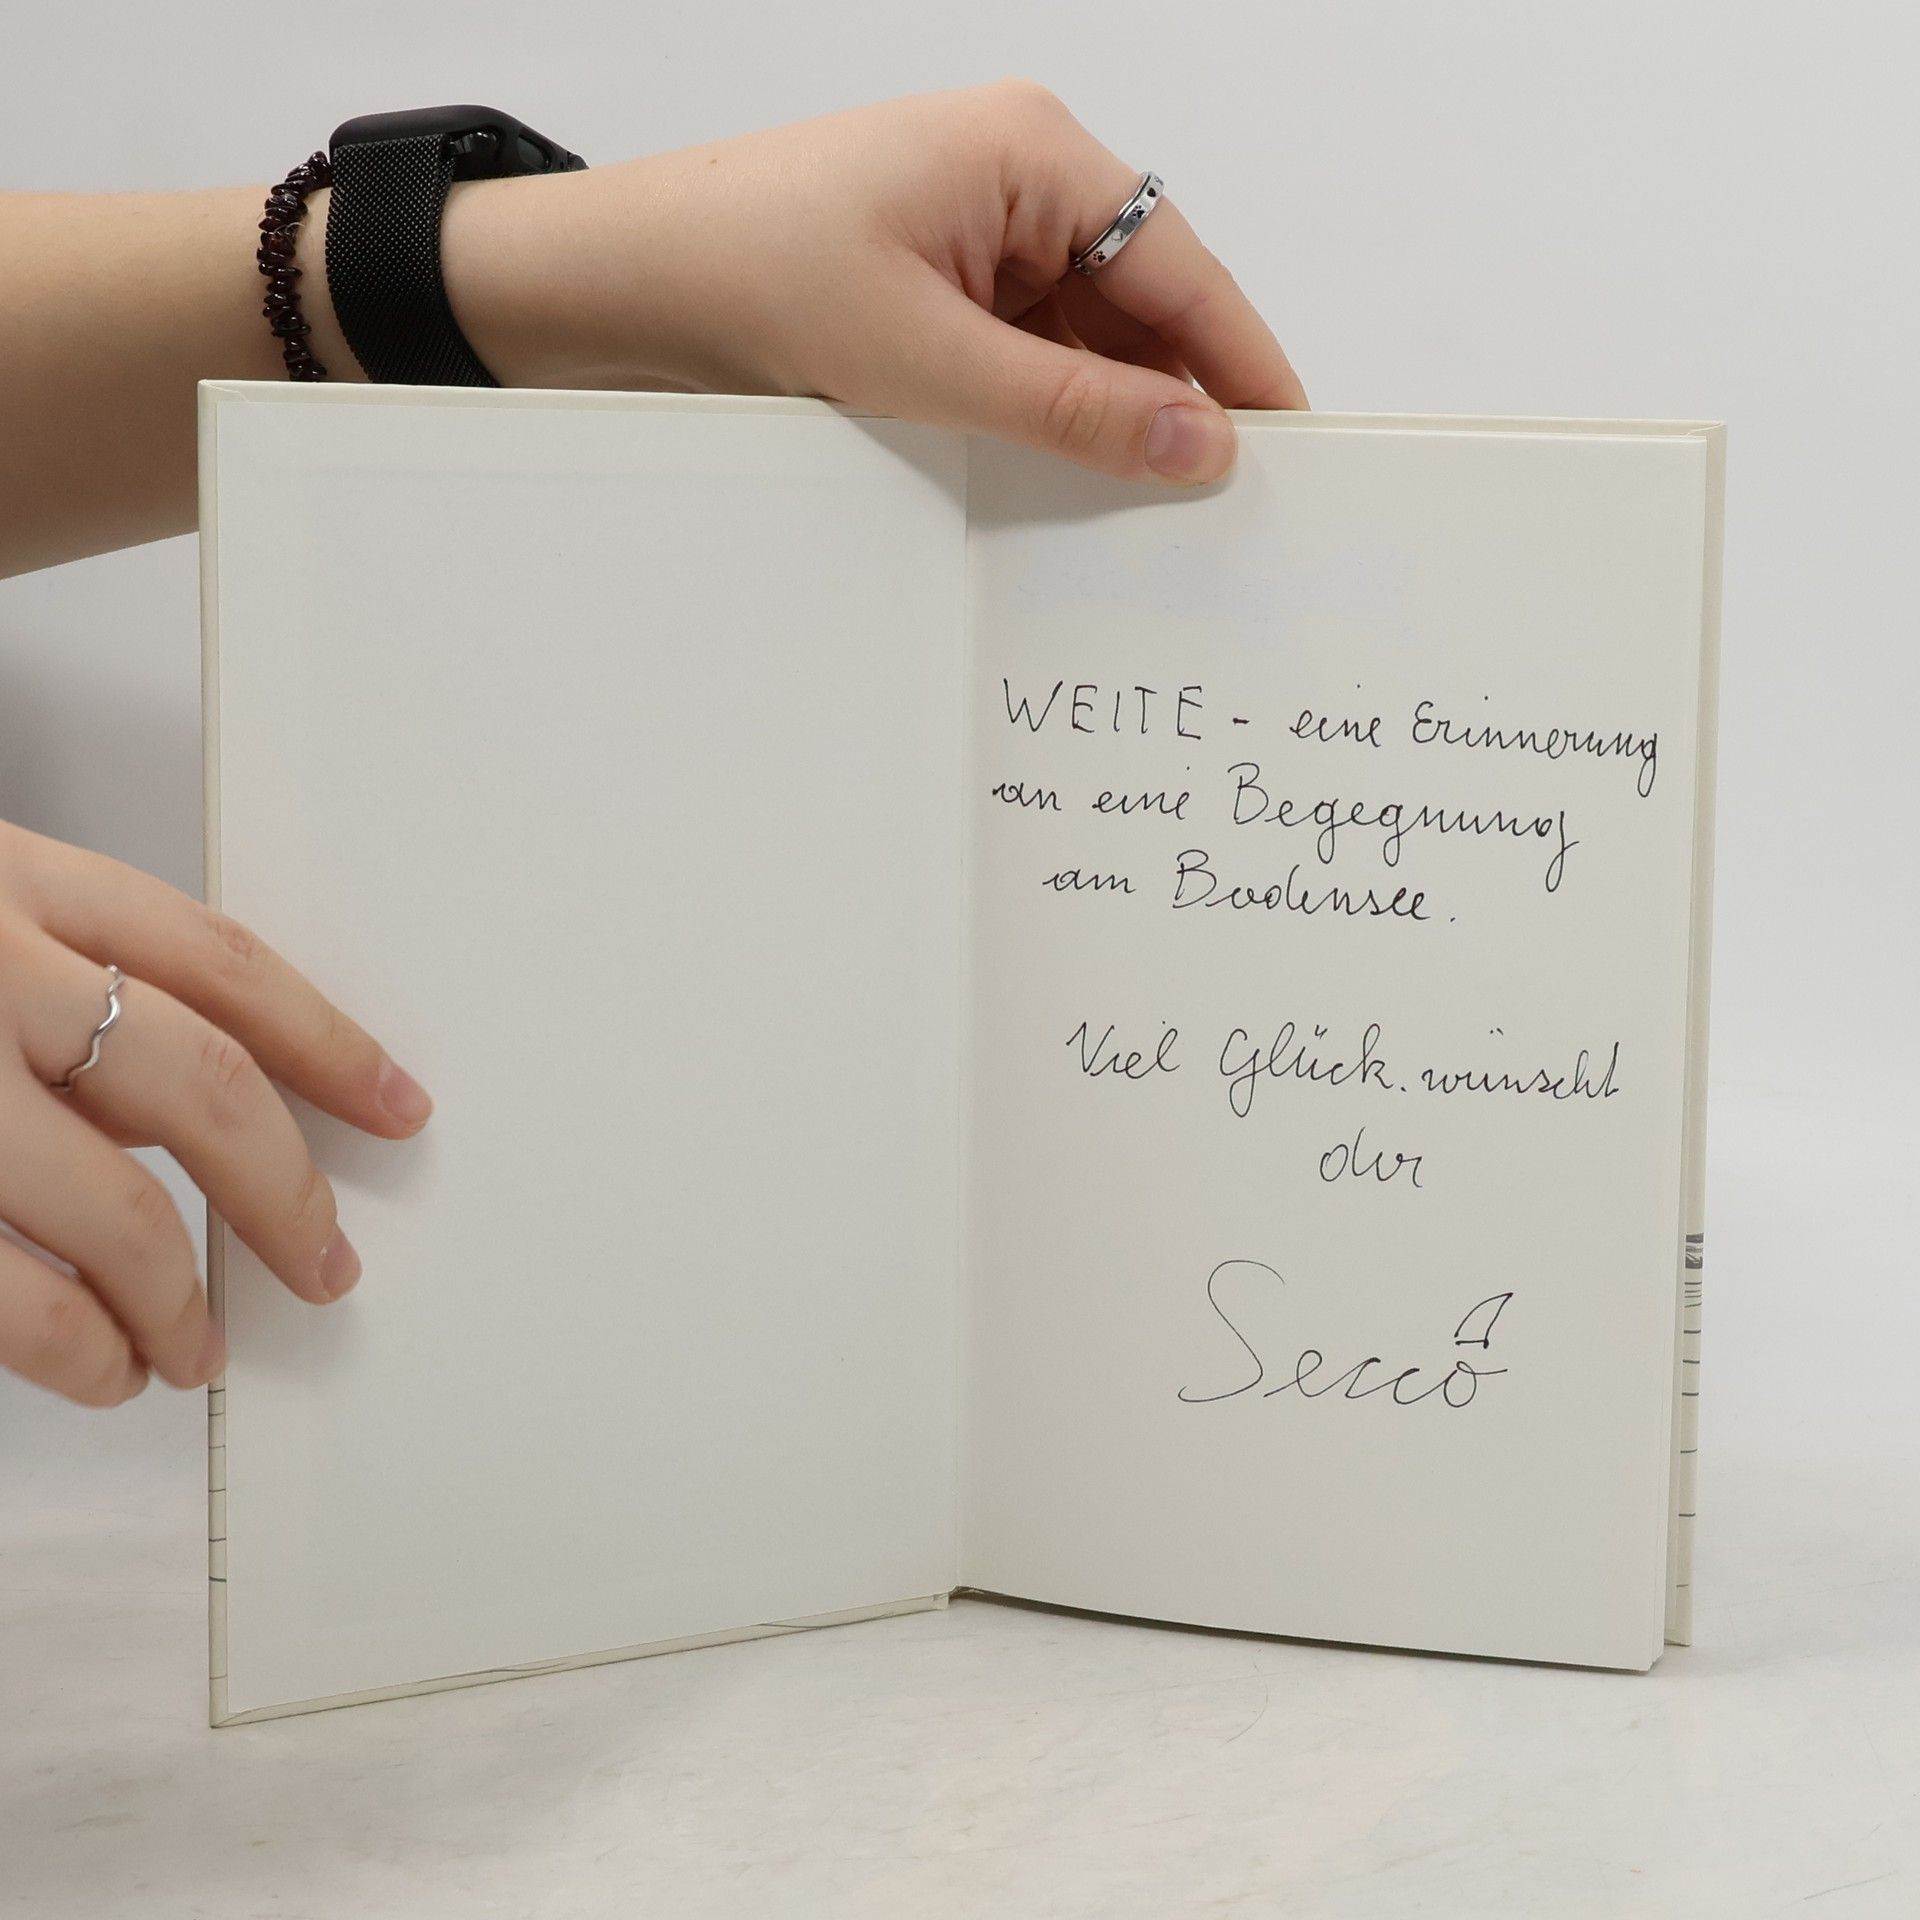 WEITE - eine Erinnerung
an eine Begegnung
am Bodensee.
Viel Glück. wünscht
der
Secco